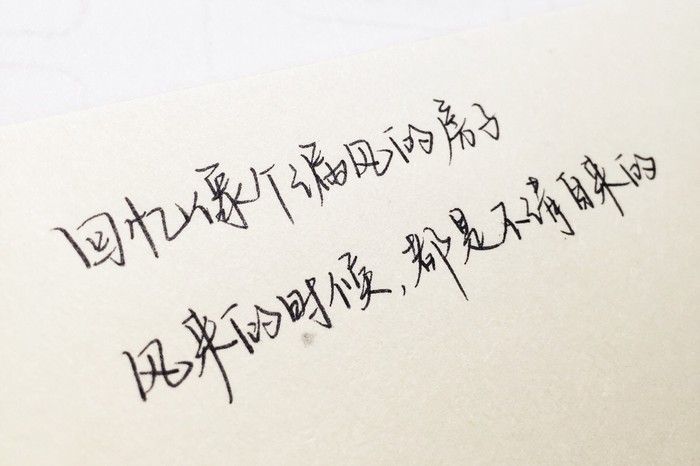 回忆像个漏风的房子
风来的时候,都是不请自来的